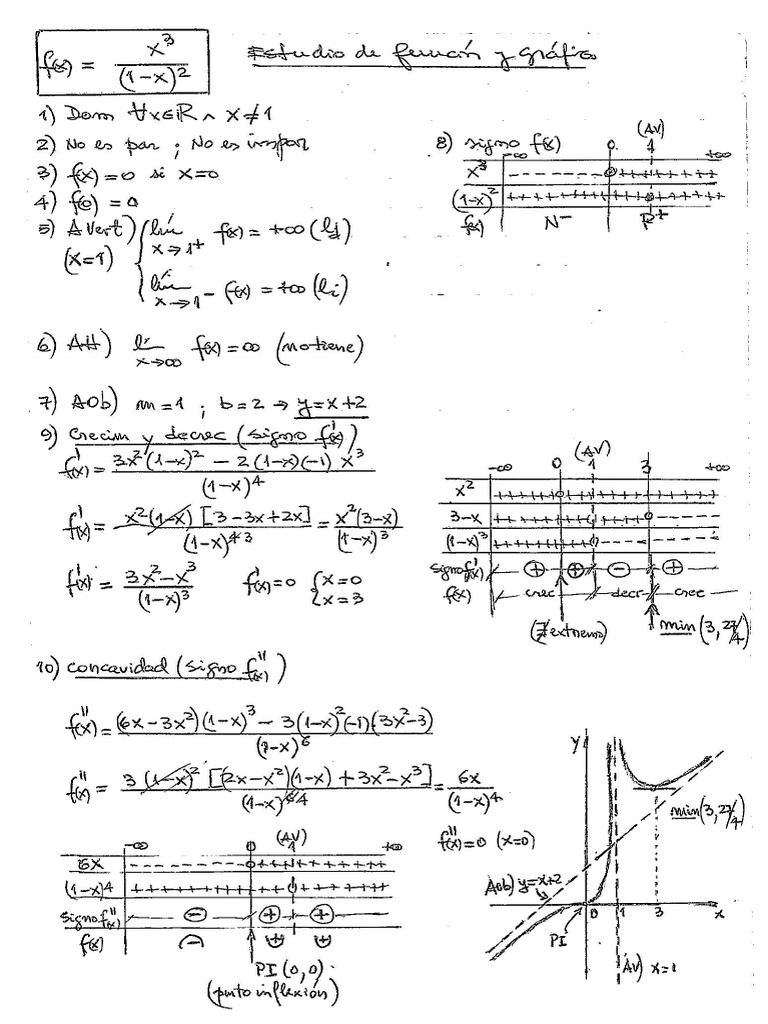 f(x) = x³/(1-x)²
Estudio de función y gráfica
1) Dom ∀x∈ℝ ∧ x≠1
2) No es par ; No es impar
3) f(x)=0 si x=0
4) f(0)=0
5) A Vert) (x=1) { lím x→1+ f(x) = +∞ (ld)
lím x→1- f(x) = +∞ (li)
6) AH) lím x→∞ f(x) = ∞ (no tiene)
7) AOb) m=1 ; b=2 → y=x+2
8) signo f(x)
-∞ 0 (AV) 1 +∞
x³
(1-x)²
f(x) N- R+
9) crecim y decrec (signo f'(x))
f'(x) = 3x²(1-x)² - 2(1-x)(-1) x³ / (1-x)⁴
f'(x) = x²(1-x) [3-3x+2x] / (1-x)⁴ ³ = x²(3-x) / (1-x)³
f'(x) = 3x²-x³ / (1-x)³ f'(x)=0 { x=0
x=3
(AV)
-∞ 0 1 3 +∞
x²
3-x
(1-x)³
signo f'(x) + + - +
f(x) crec decr crec
(∄ extremo) min (3, 27/4)
10) concavidad (signo f''(x))
f''(x) = (6x-3x²)(1-x)³ - 3(1-x)²(-1)(3x²-3) / (1-x)⁶
f''(x) = 3(1-x)² [(2x-x²)(1-x) + 3x²-x³] / (1-x)⁶ ⁴ = 6x / (1-x)⁴
f''(x)=0 (x=0)
(AV)
-∞ 0 1 +∞
6x
(1-x)⁴
signo f''(x) - + +
f(x)
PI (0,0)
(punto inflexión)
y
min (3, 27/4)
AOb) y=x+2
0 1 3 x
PI
AV) x=1